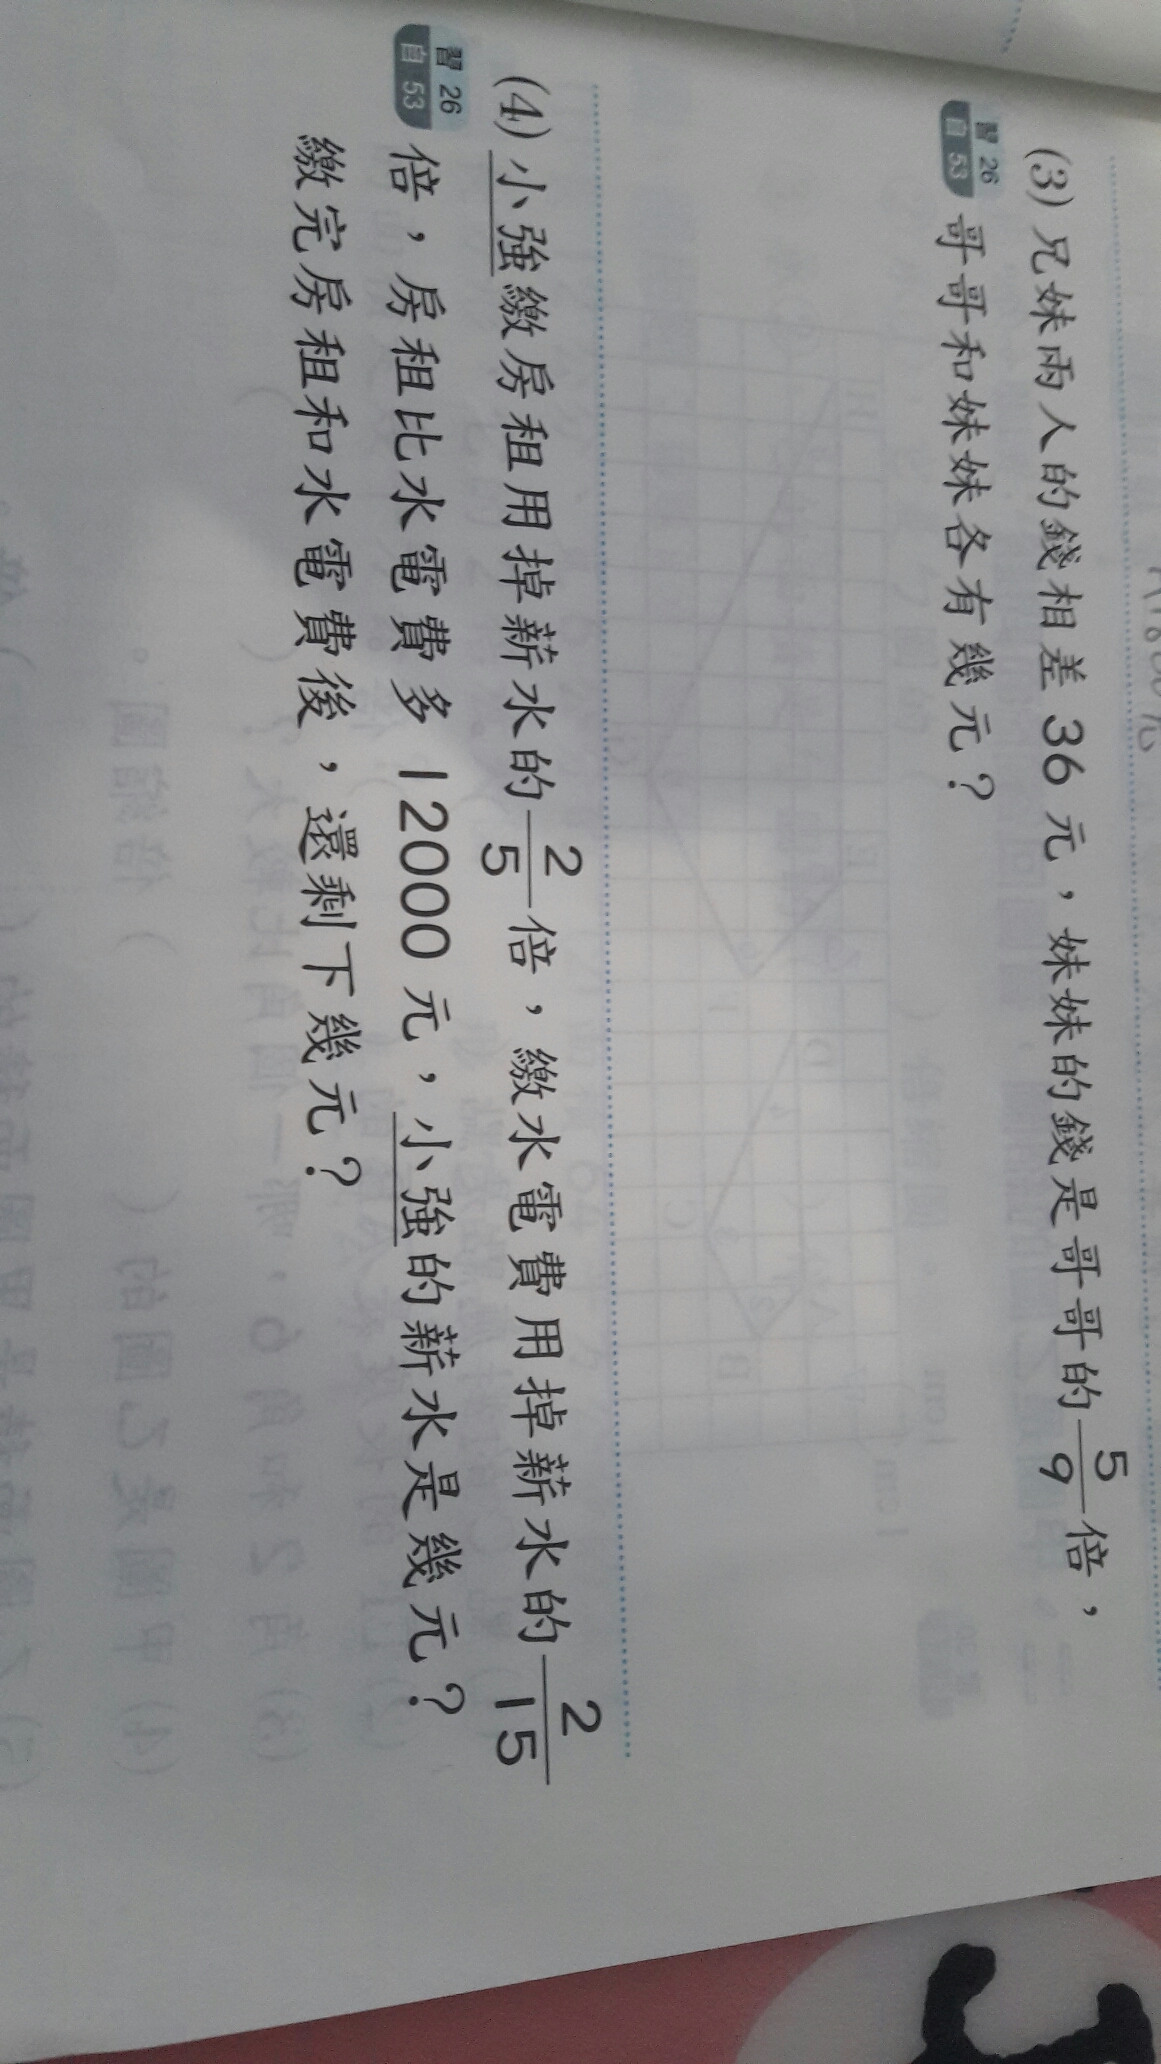 (3) 兄妹兩人的錢相差 36 元，妹妹的錢是哥哥的 5/9 倍，
習 26
自 53
哥哥和妹妹各有幾元？
(4) 小強繳房租用掉薪水的 2/5 倍，繳水電費用掉薪水的 2/15
習 26
自 53
倍，房租比水電費多 12000 元，小強的薪水是幾元？
繳完房租和水電費後，還剩下幾元？